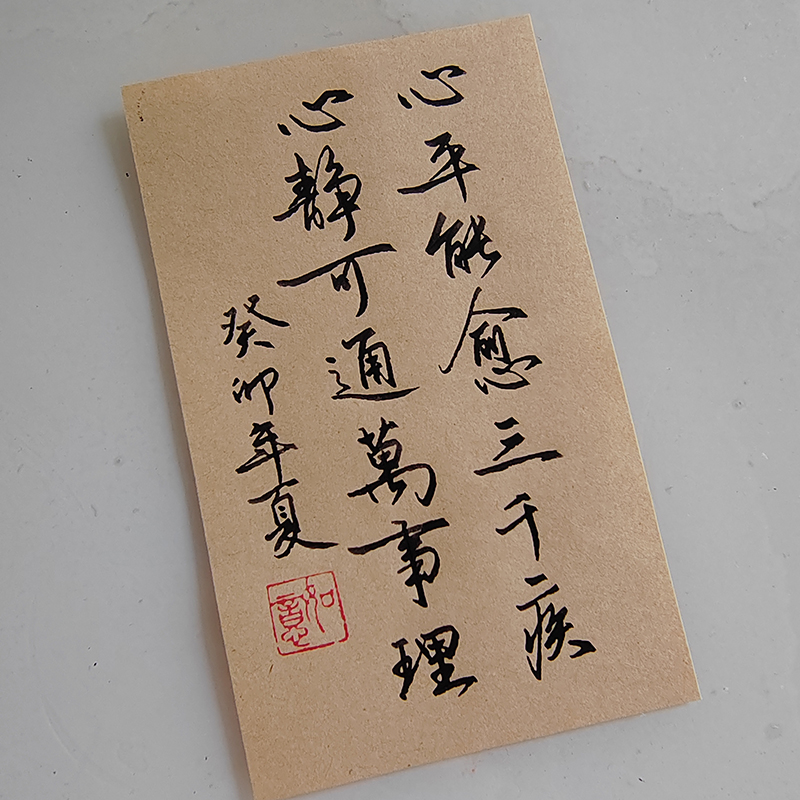 心平能愈三千疾
心靜可通萬事理
癸卯年夏
如意